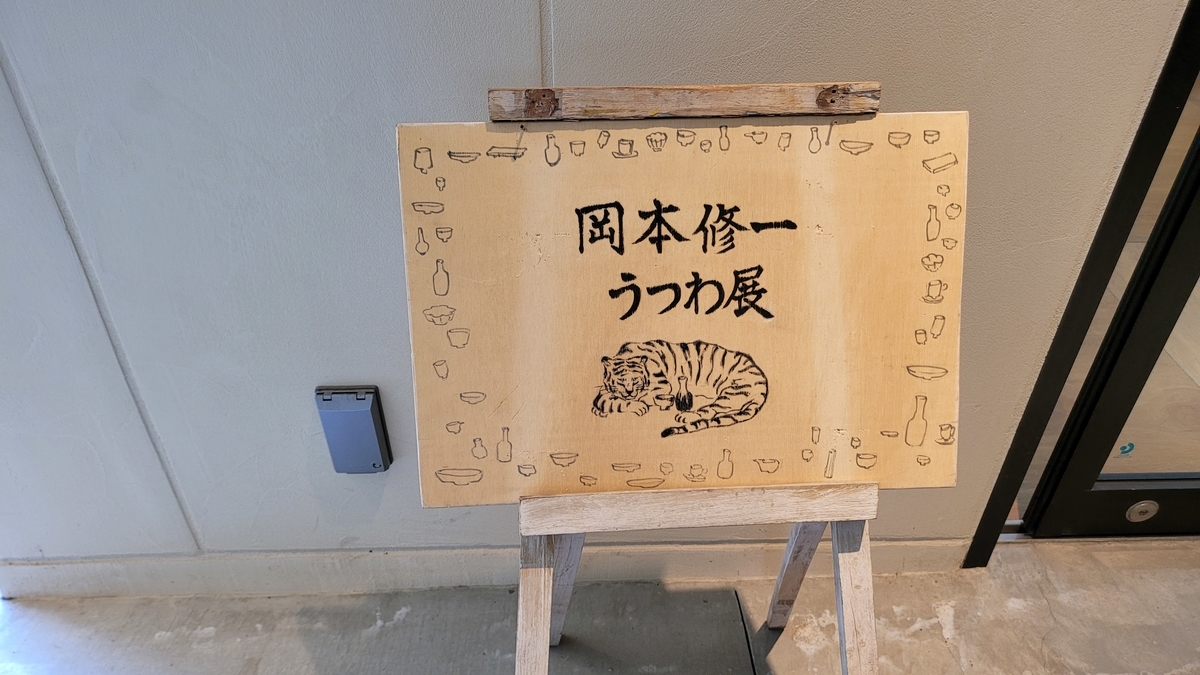 岡本修一
うつわ展